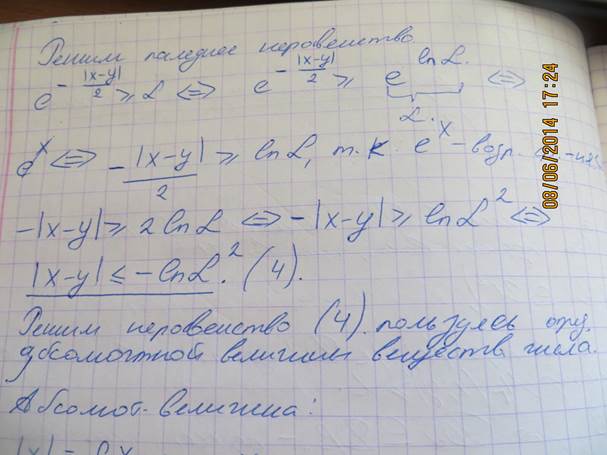 Решим последнее неравенство.
e^{-|x-y|/2} ≥ L ⇔ e^{-|x-y|/2} ≥ e^{ln L} ⇔
L.
⇔ -|x-y|/2 ≥ ln L, т.к. e^x - возр.
-|x-y| ≥ 2 ln L ⇔ -|x-y| ≥ ln L^2 ⇔
|x-y| ≤ -ln L^2. (4).
Решим неровенство (4). пользуясь опр.
абсолютной величины веществ. числа.
Абсолют. величина:
08/06/2014 17:24